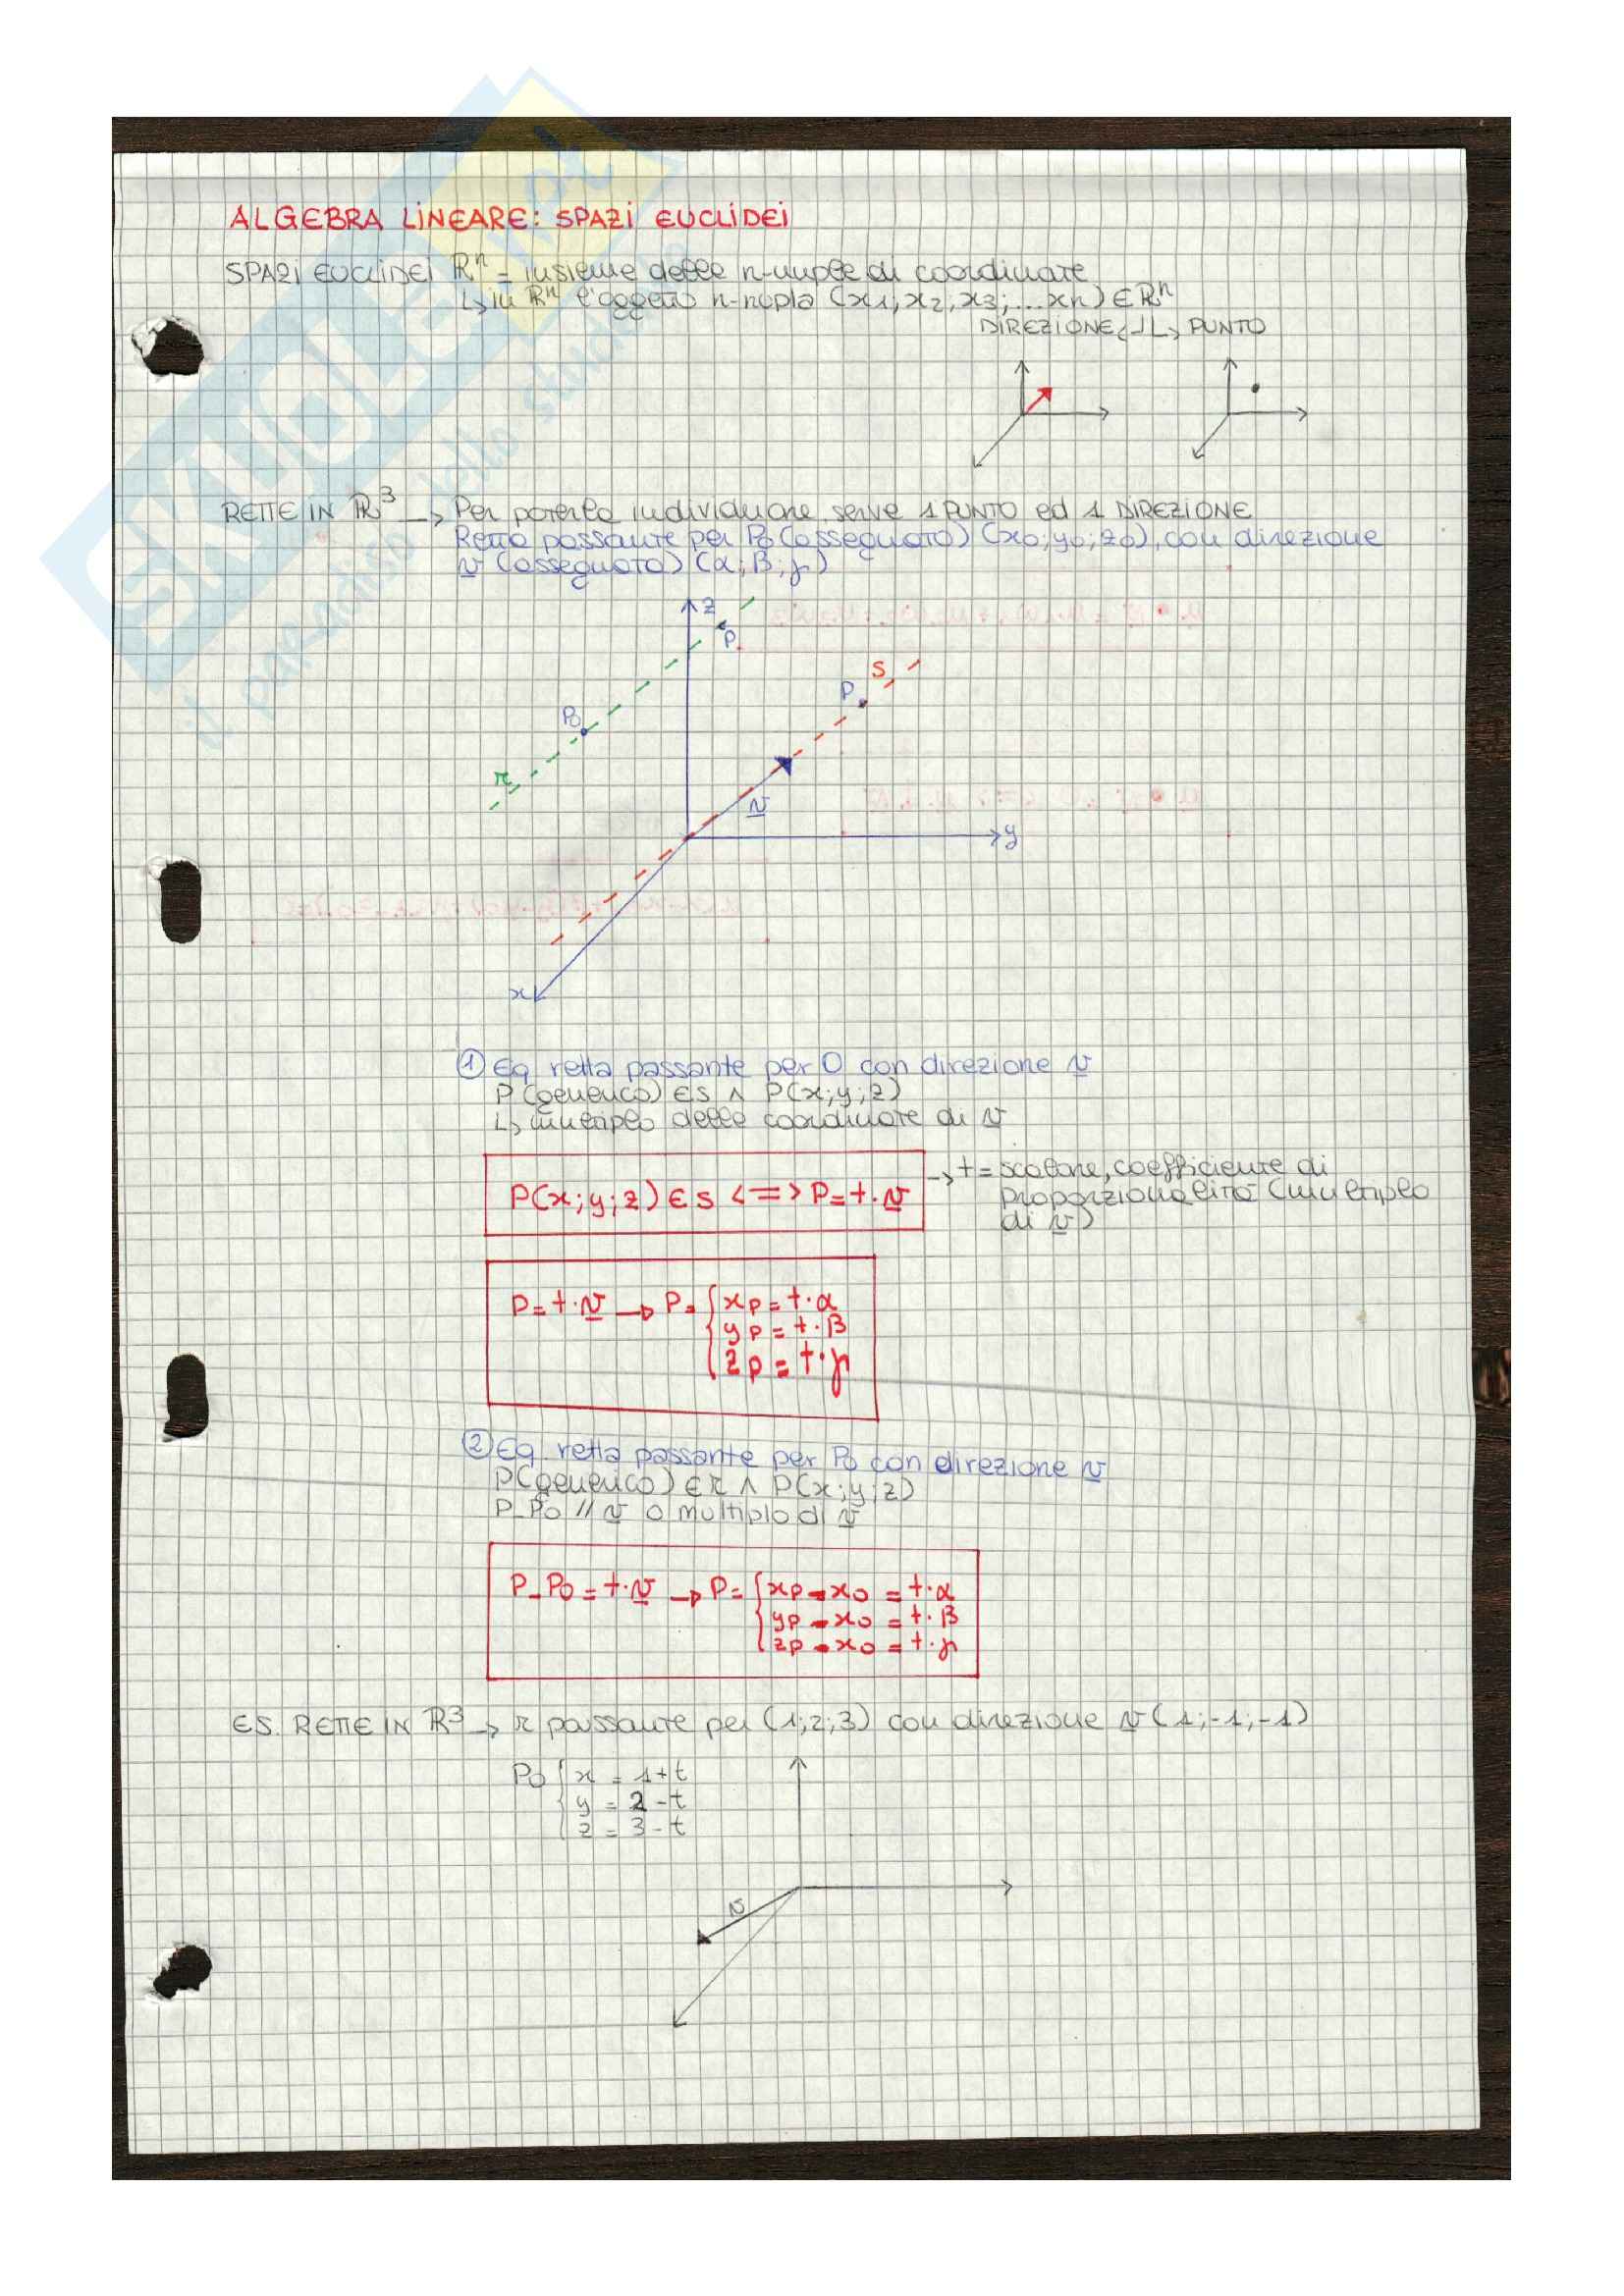 ALGEBRA LINEARE: SPAZI EUCLIDEI
SPAZI EUCLIDEI ℝⁿ = insieme delle n-nuple di coordinate
↳ in ℝⁿ l'oggetto n-nupla (x1; x2; x3; ... xn) ∈ ℝⁿ
DIREZIONE ↲ ↳ PUNTO
RETTE IN ℝ³ → Per poterla individuare serve 1 PUNTO ed 1 DIREZIONE
Retta passante per P0 (assegnato) (x0; y0; z0), con direzione
v (assegnata) (α; β; γ)
z
P
S
P
P0
r
v
y
x
① Eq. retta passante per O con direzione v
P (generico) ∈ s ∧ P(x; y; z)
↳ multiplo delle coordinate di v
P(x; y; z) ∈ s <=> P = t·v
→ t = scalare, coefficiente di
proporzionalità (multiplo
di v)
P = t·v → P = { xp = t·α
yp = t·β
zp = t·γ
② Eq. retta passante per P0 con direzione v
P (generico) ∈ r ∧ P(x; y; z)
P-P0 // v o multiplo di v
P-P0 = t·v → P = { xp - x0 = t·α
yp - x0 = t·β
zp - x0 = t·γ
ES. RETTE IN ℝ³ → r passante per (1; 2; 3) con direzione v (1; -1; -1)
P0 { x = 1+t
y = 2-t
z = 3-t
v
SKUOLA.net
il paradiso dello studente